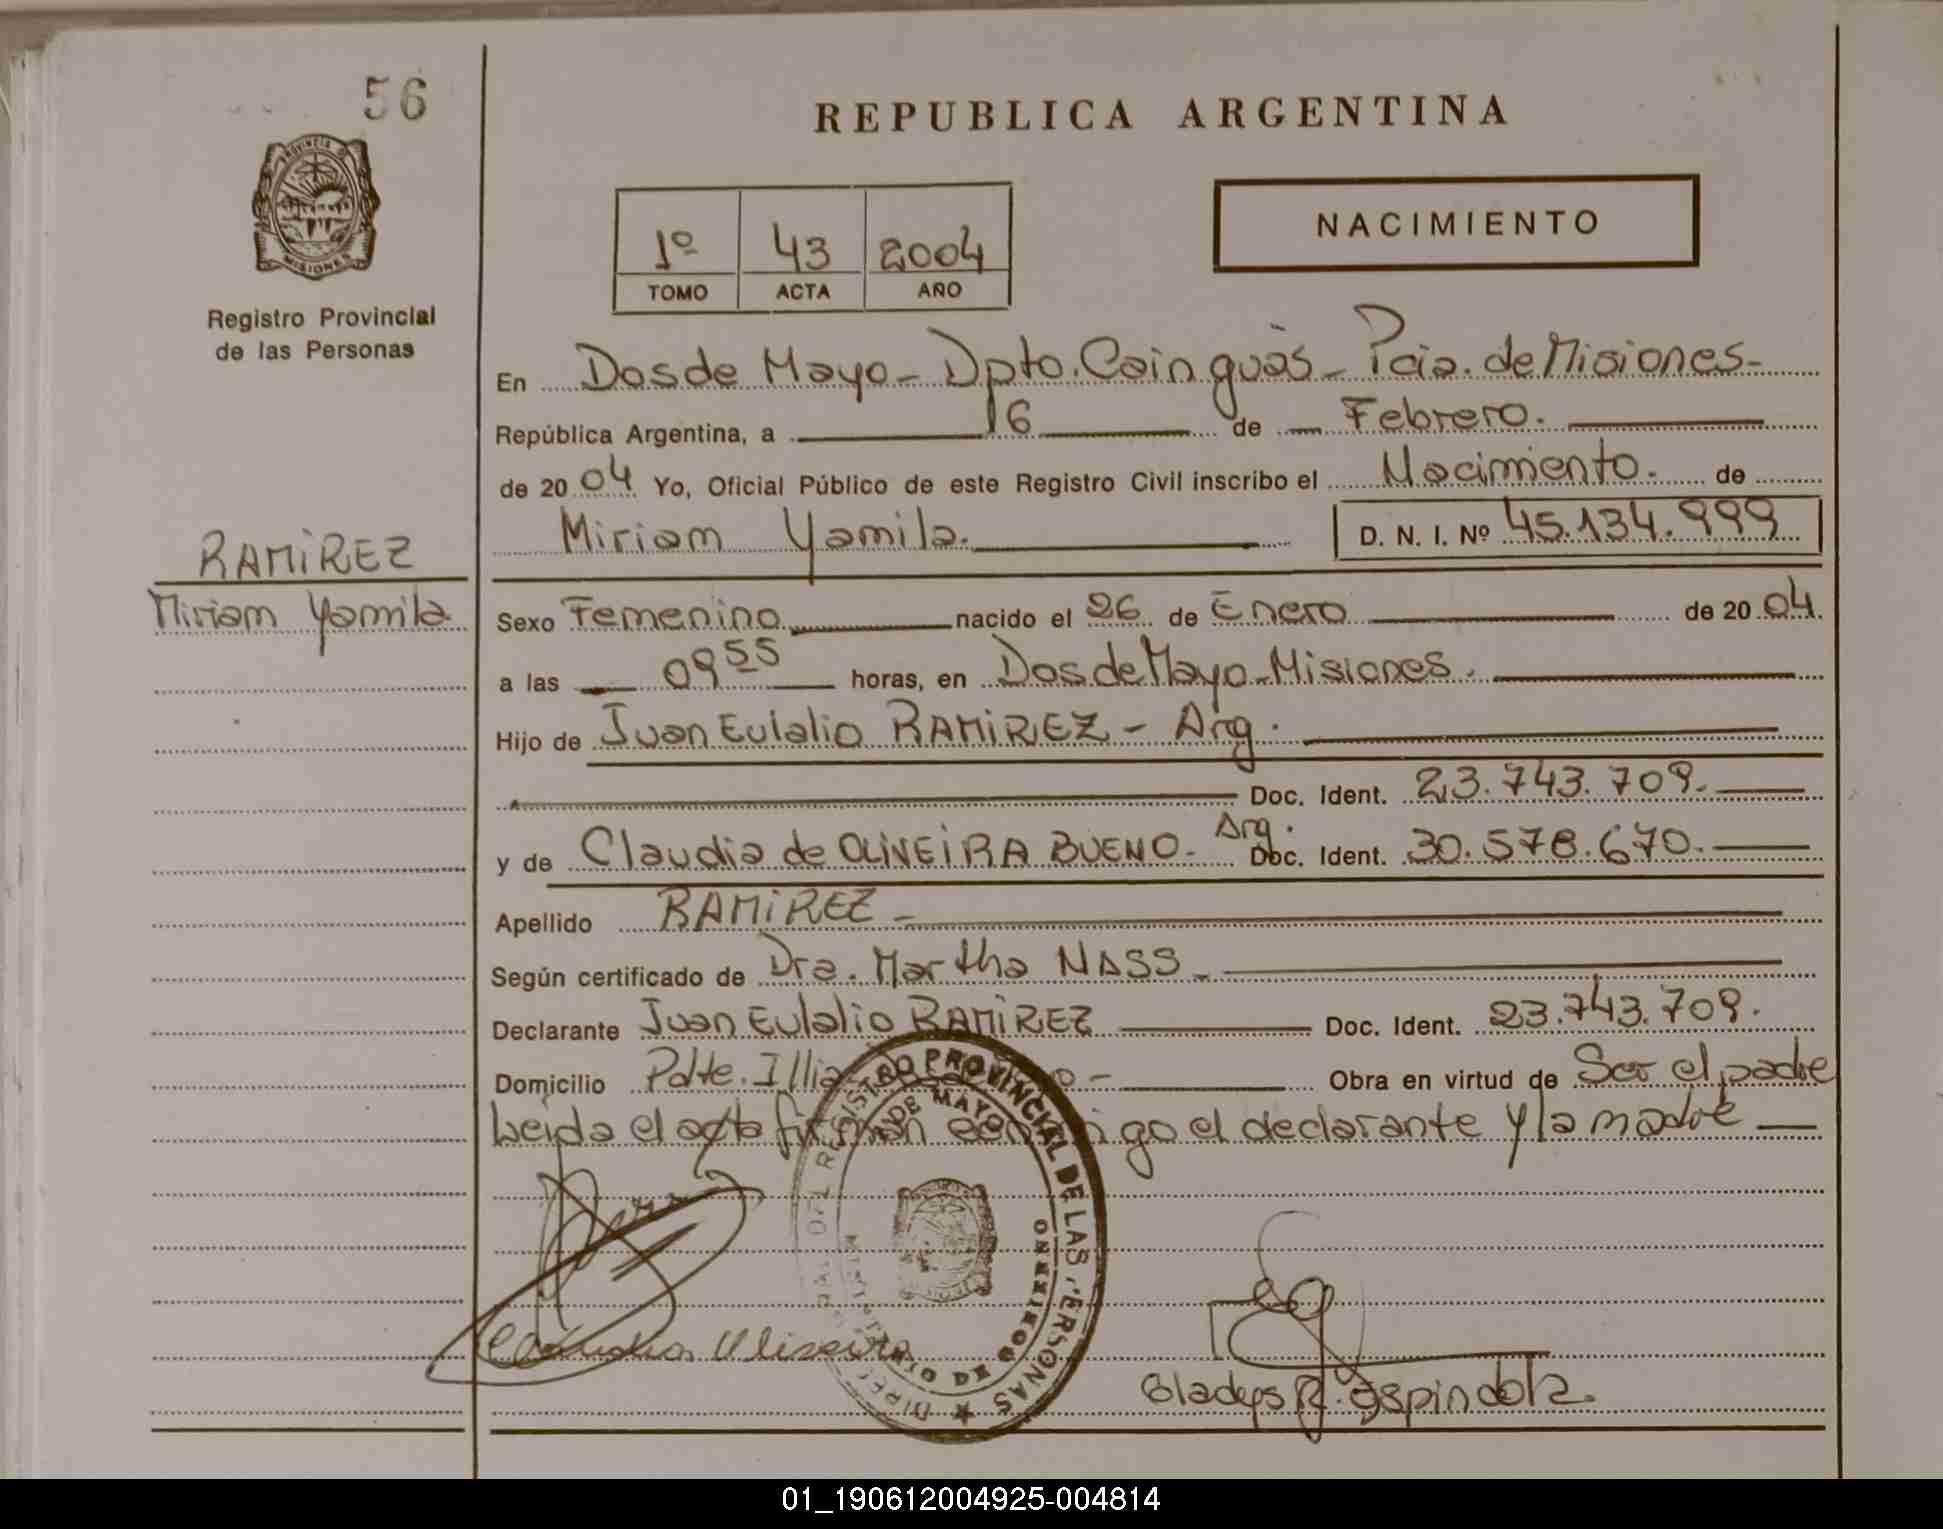 56
REPUBLICA ARGENTINA
PROVINCIA D
MISIONES
Registro Provincial
de las Personas
NACIMIENTO
1º 43 2004
TOMO ACTA AÑO
En Dos de Mayo - Dpto. Cainguàs - Pcia. de Misiones -
República Argentina, a 16 de Febrero.
de 20 04 Yo, Oficial Público de este Registro Civil inscribo el Nacimiento. de
Miriam Yamila. D. N. I. Nº 45.134.999
RAMIREZ
Miriam Yamila
Sexo Femenino nacido el 26 de Enero de 20 04.
a las 09 55 horas, en Dos de Mayo - Misiones.
Hijo de Juan Eulalio RAMIREZ - Arg.
Doc. Ident. 23.743.709.
y de Claudia de OLIVEIRA BUENO - Arg. Doc. Ident. 30.578.670.
Apellido RAMIREZ -
Según certificado de Dra. Martha NASS -
Declarante Juan Eulalio RAMIREZ Doc. Ident. 23.743.709.
Domicilio Pdte. Illia Obra en virtud de Ser el padre
Leida el acta firman conmigo el declarante y la madre
REGISTRO PROVINCIAL DE LAS PERSONAS
DE MAYO
MINISTERIO DE GOBIERNO
Claudia Oliveira
Gladys R. Espindola.
01_190612004925-004814